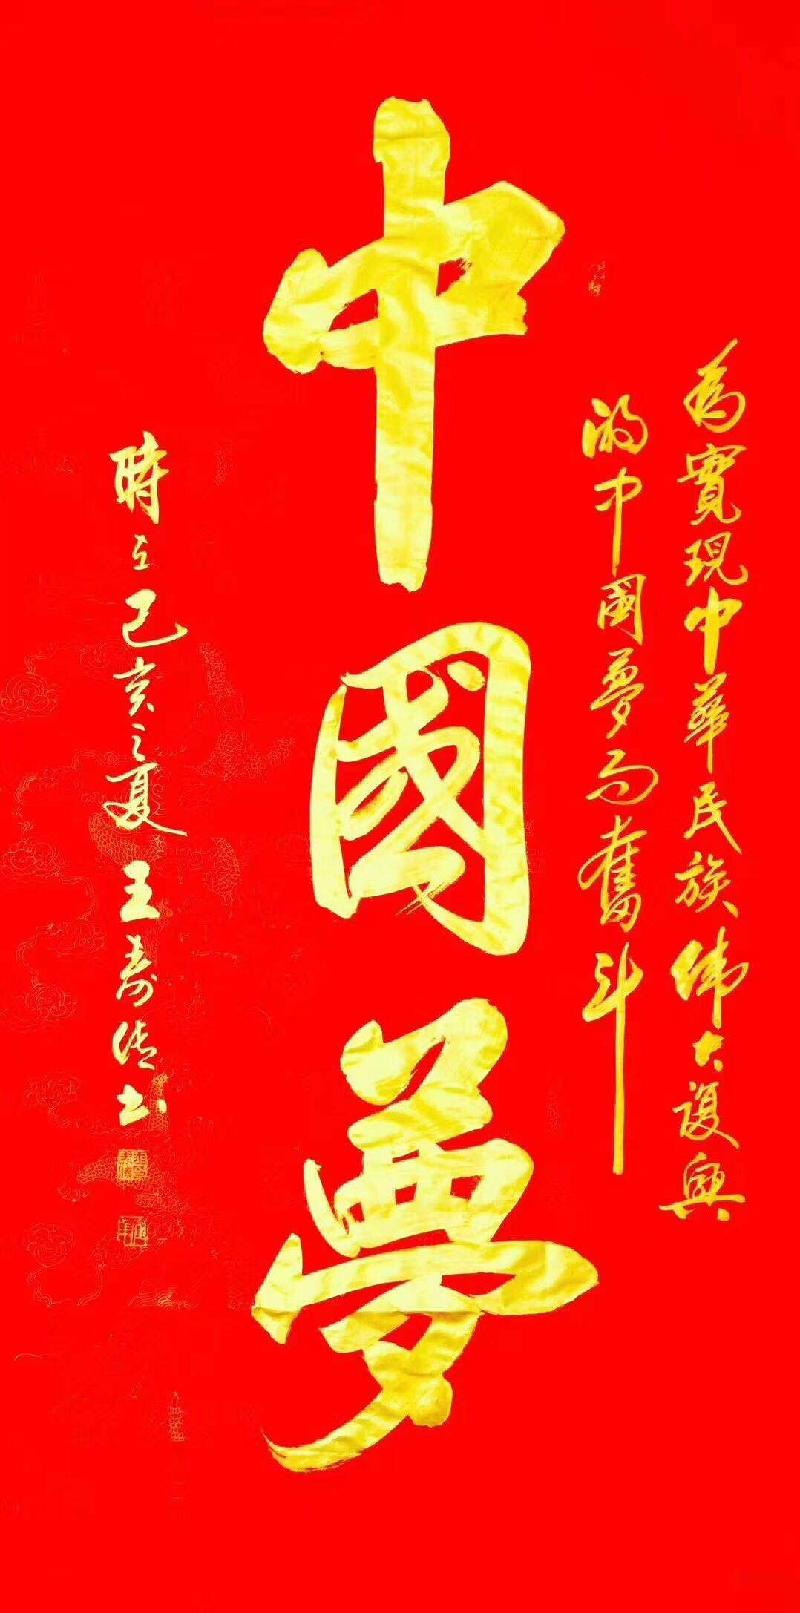 為實現中華民族偉大復興
的中國夢而奮斗
中國夢
時在己亥之夏王壽信书